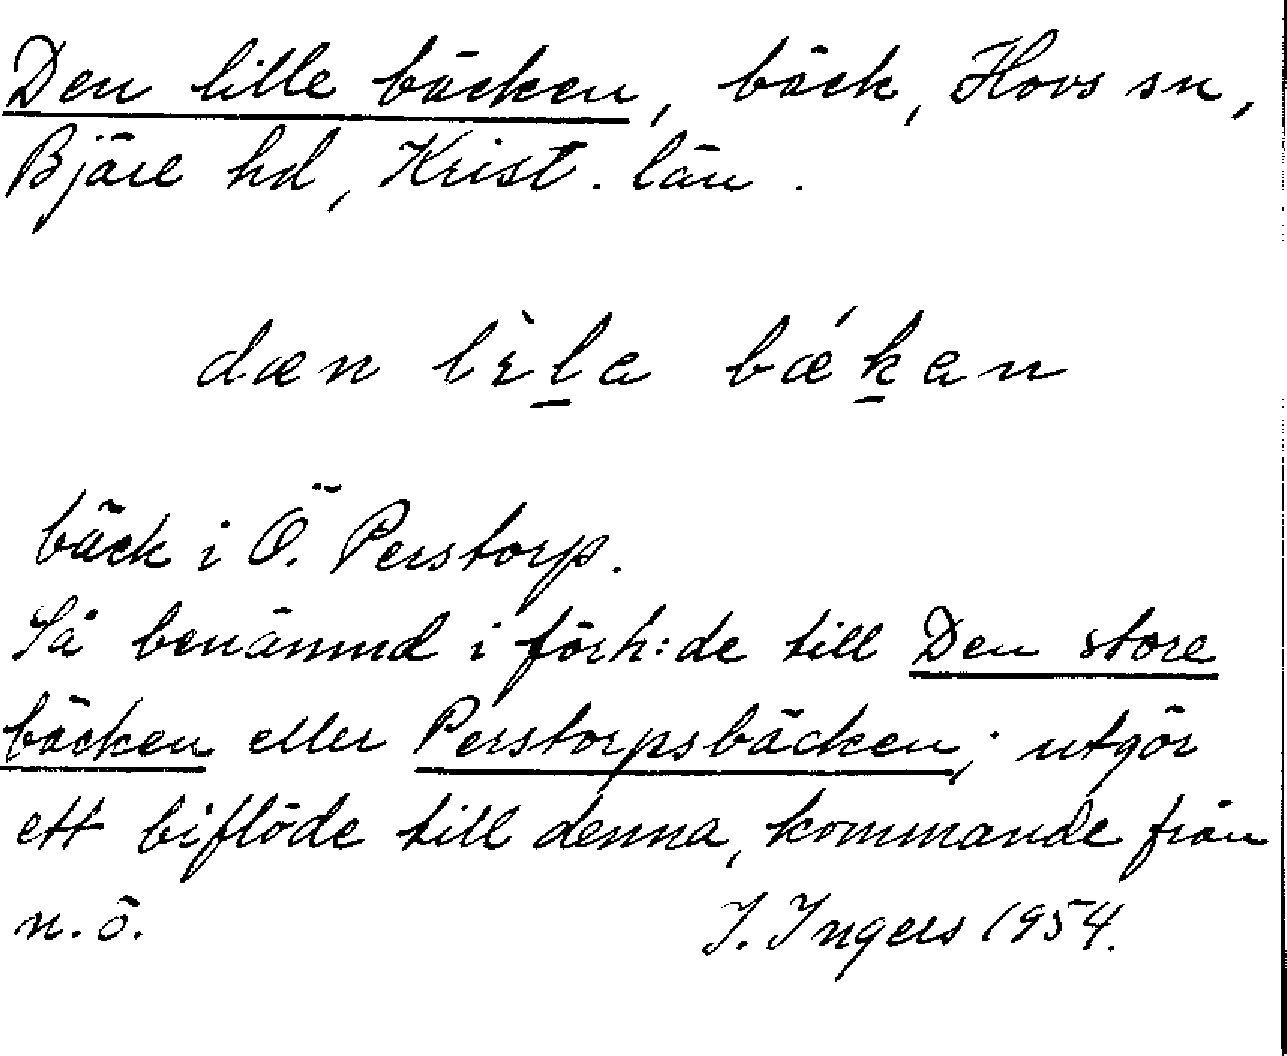 Den lille bäcken, bäck, Hovs sn,
Bjäre hd, Krist. län.
dæn lìl̠a bæ´k̠an
bäck i Ö. Perstorp.
Så benämnd i förh:de till Den store
bäcken eller Perstorpsbäcken; utgör
ett biflöde till denna, kommande från
n.ö.
I. Ingers 1954.